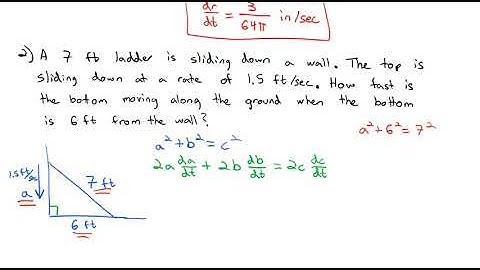 dr/dt = 3/64π in/sec
2) A 7 ft ladder is sliding down a wall. The top is
sliding down at a rate of 1.5 ft/sec. How fast is
the botom moving along the ground when the bottom
is 6 ft from the wall?
a² + 6² = 7²
a² + b² = c²
2a da/dt + 2b db/dt = 2c dc/dt
1.5 ft/sec
7 ft
a
6 ft